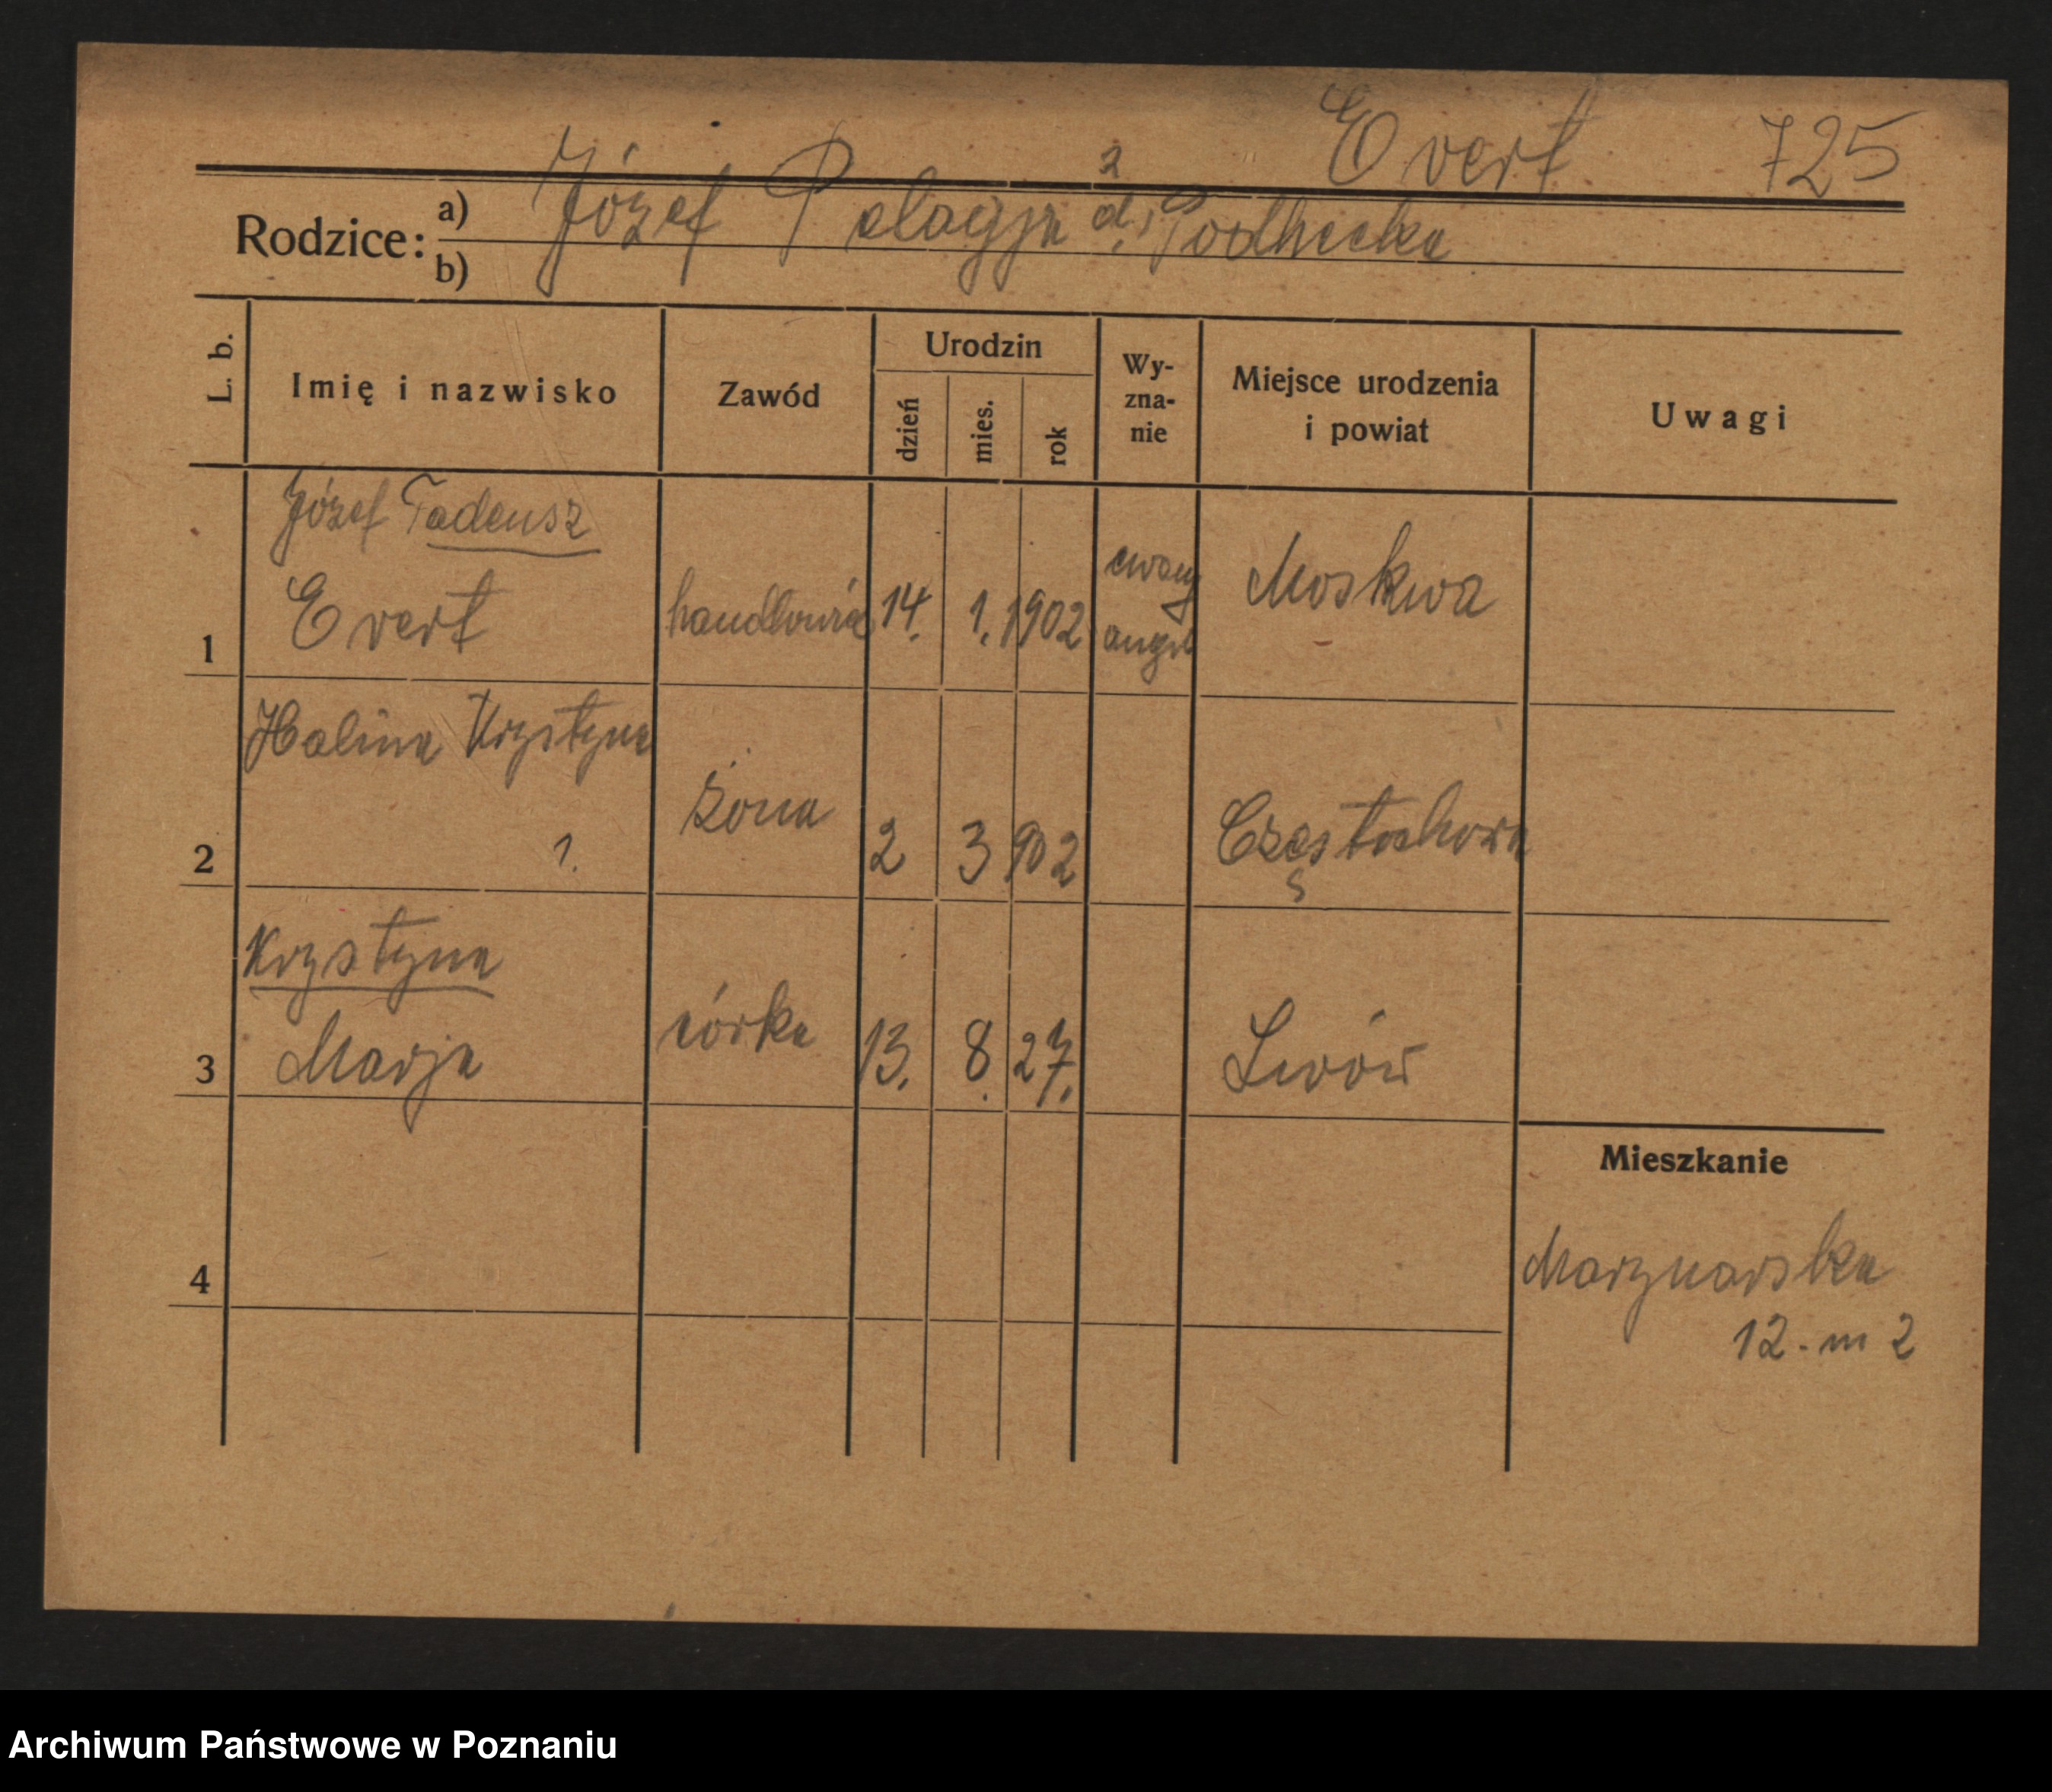 Evert 725
Rodzice: a) Józef Pelagja z d.
b)
L. b.
Imię i nazwisko
Zawód
Urodzin
dzień
mies.
rok
Wy-
zna-
nie
Miejsce urodzenia
i powiat
Uwagi
Józef Tadeusz
Evert
1 handlowiec 14. 1. 1902 ewang Moskwa
Halina Krystyna
2 żona 2 3 902 Częstochowa
Krystyna
Marja
3 córka 13. 8. 27. Lwów
4
Mieszkanie
Marynarska
12 - m 2
Archiwum Państwowe w Poznaniu